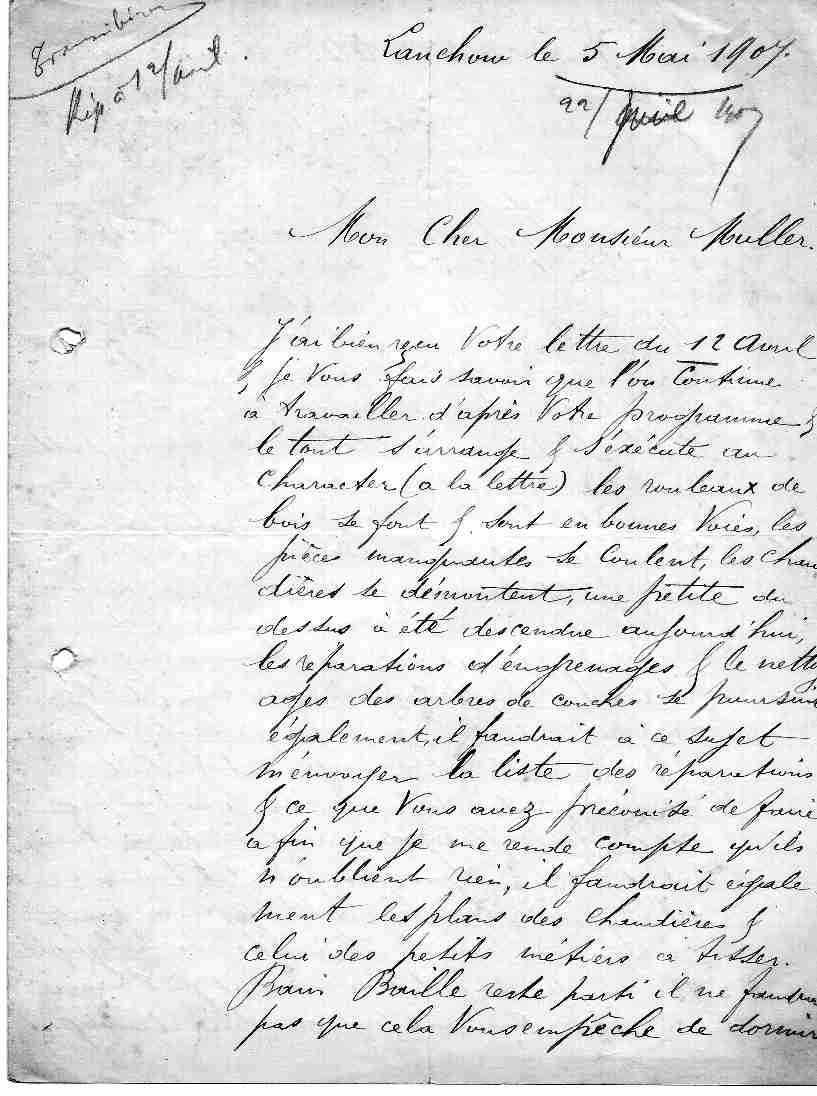 Rép à 12/avril.
Lanchow le 5 Mai 1907.
22/ avril 1907
Mon Cher Monsiéur Muller.
J'ai bién reçu Votre lettre du 12 Avril
& je Vous fais savoir que l'on Continue
à travailler d'après Votre programme &
le tout s'arrange & s'éxécute au
Character (a la lettre) les rouleaux de
bois se font & sont en bonnes Voiés, les
pièces manquantes se Coulent, les chau
dières se démontent, une petite du
dessus à été descendue aujourd'hui,
les réparations d'éngrenages & le netto
ages des arbres de couches se poursuiv
également, il faudrait à ce sujet
m'énvoyer la liste des réparations
& ce que Vous avez préconisé de faire
a fin que je me rende compte qu'ils
n'oublient rien, il faudrait égale
ment les plans des chaudières &
celui des petits métiers à tisser.
Baille reste parti il ne faudra
pas que cela Vous empêche de dormir